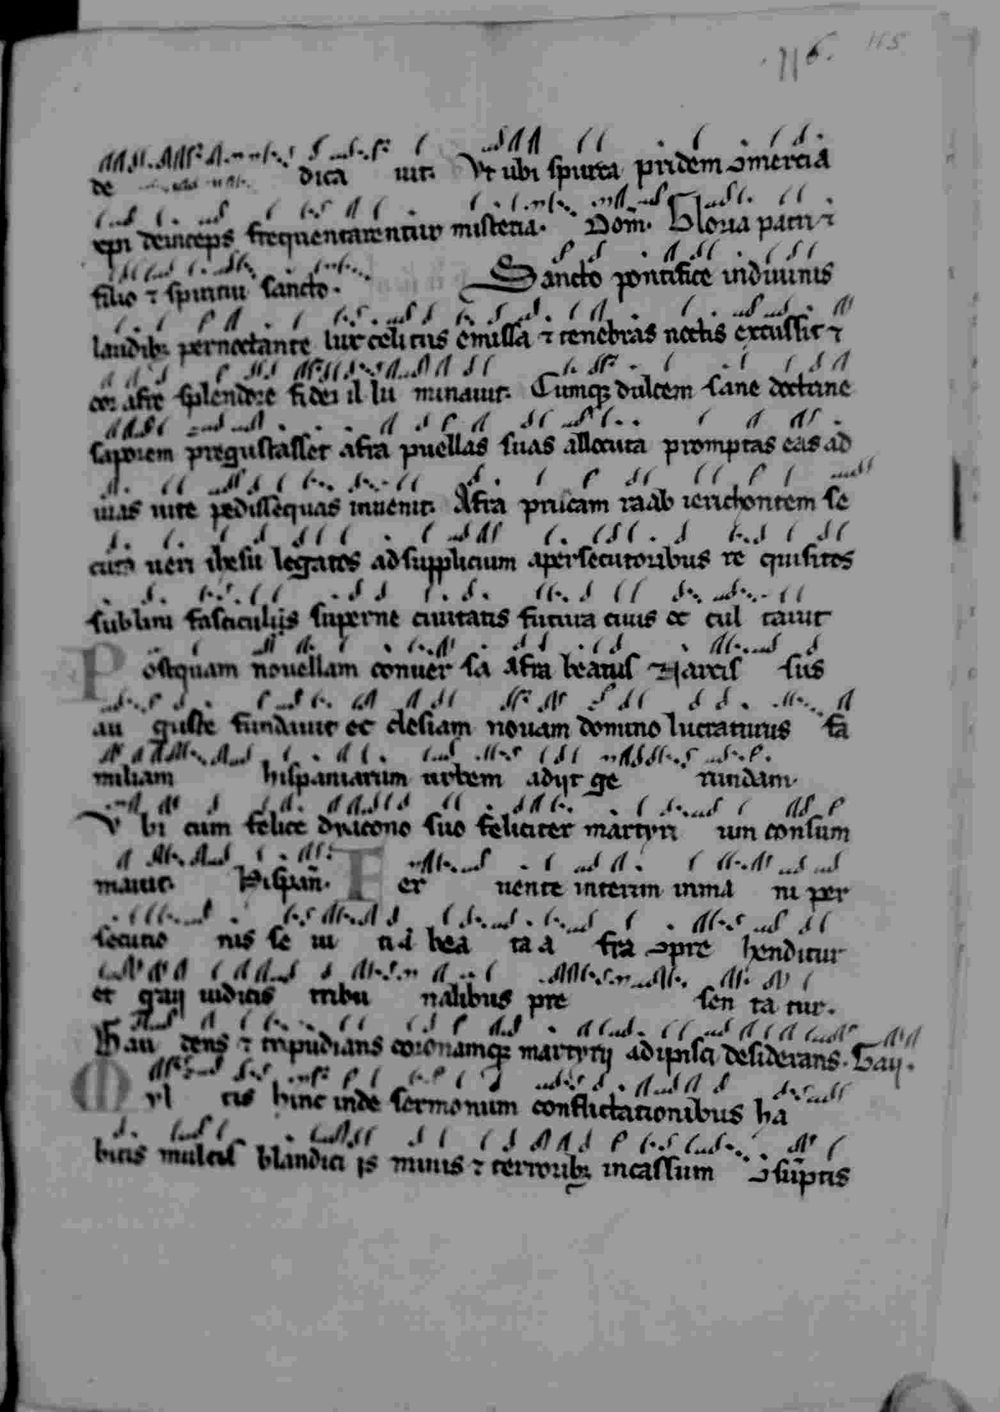 116. 115
de dica uit. Ut ubi spurca pridem ɔmercia
xpi deinceps frequentarentur misteria. Dom. Gloria patri ⁊
filio ⁊ spiritui sancto. Sancto pontifice indiuinis
laudibꝫ pernoctante lux celitus emissa ⁊ tenebras noctis excussit ⁊
cor afre splendore fidei il lu minauit. Cumqꝫ dulcem sane doctrine
saporem pregustasset afra puellas suas allocuta promptas eas ad
uias uite pedissequas inuenit. Afra priscam raab ierichontem se
cuta ueri ihesu legatos ad supplicium apersecutoribus re quisitos
sub lini fasciculijs superne ciuitatis futura ciuis oc cul tauit
Postquam nouellam conuer sa Afra beatus Narcis sus
au guste fundauit ec clesiam nouam domino lucraturus fa
miliam hispaniarum urbem adijt ge rundam.
Ubi cum felice dyacono suo feliciter martyri um consum
mauit. Hispan. Fer uente interim inma ni per
secutio nis se ui ti a bea ta a fra ɔpre henditur
et gaij iudicis tribu nalibus pre sen ta tur.
Gau dens ⁊ tripudians coronamqꝫ martyrij adipisci desiderans. Gaij.
Mul tis hinc inde sermonum conflictationibus ha
bitis multis blandici js minis ⁊ terroribꝫ incassum ɔsūptis